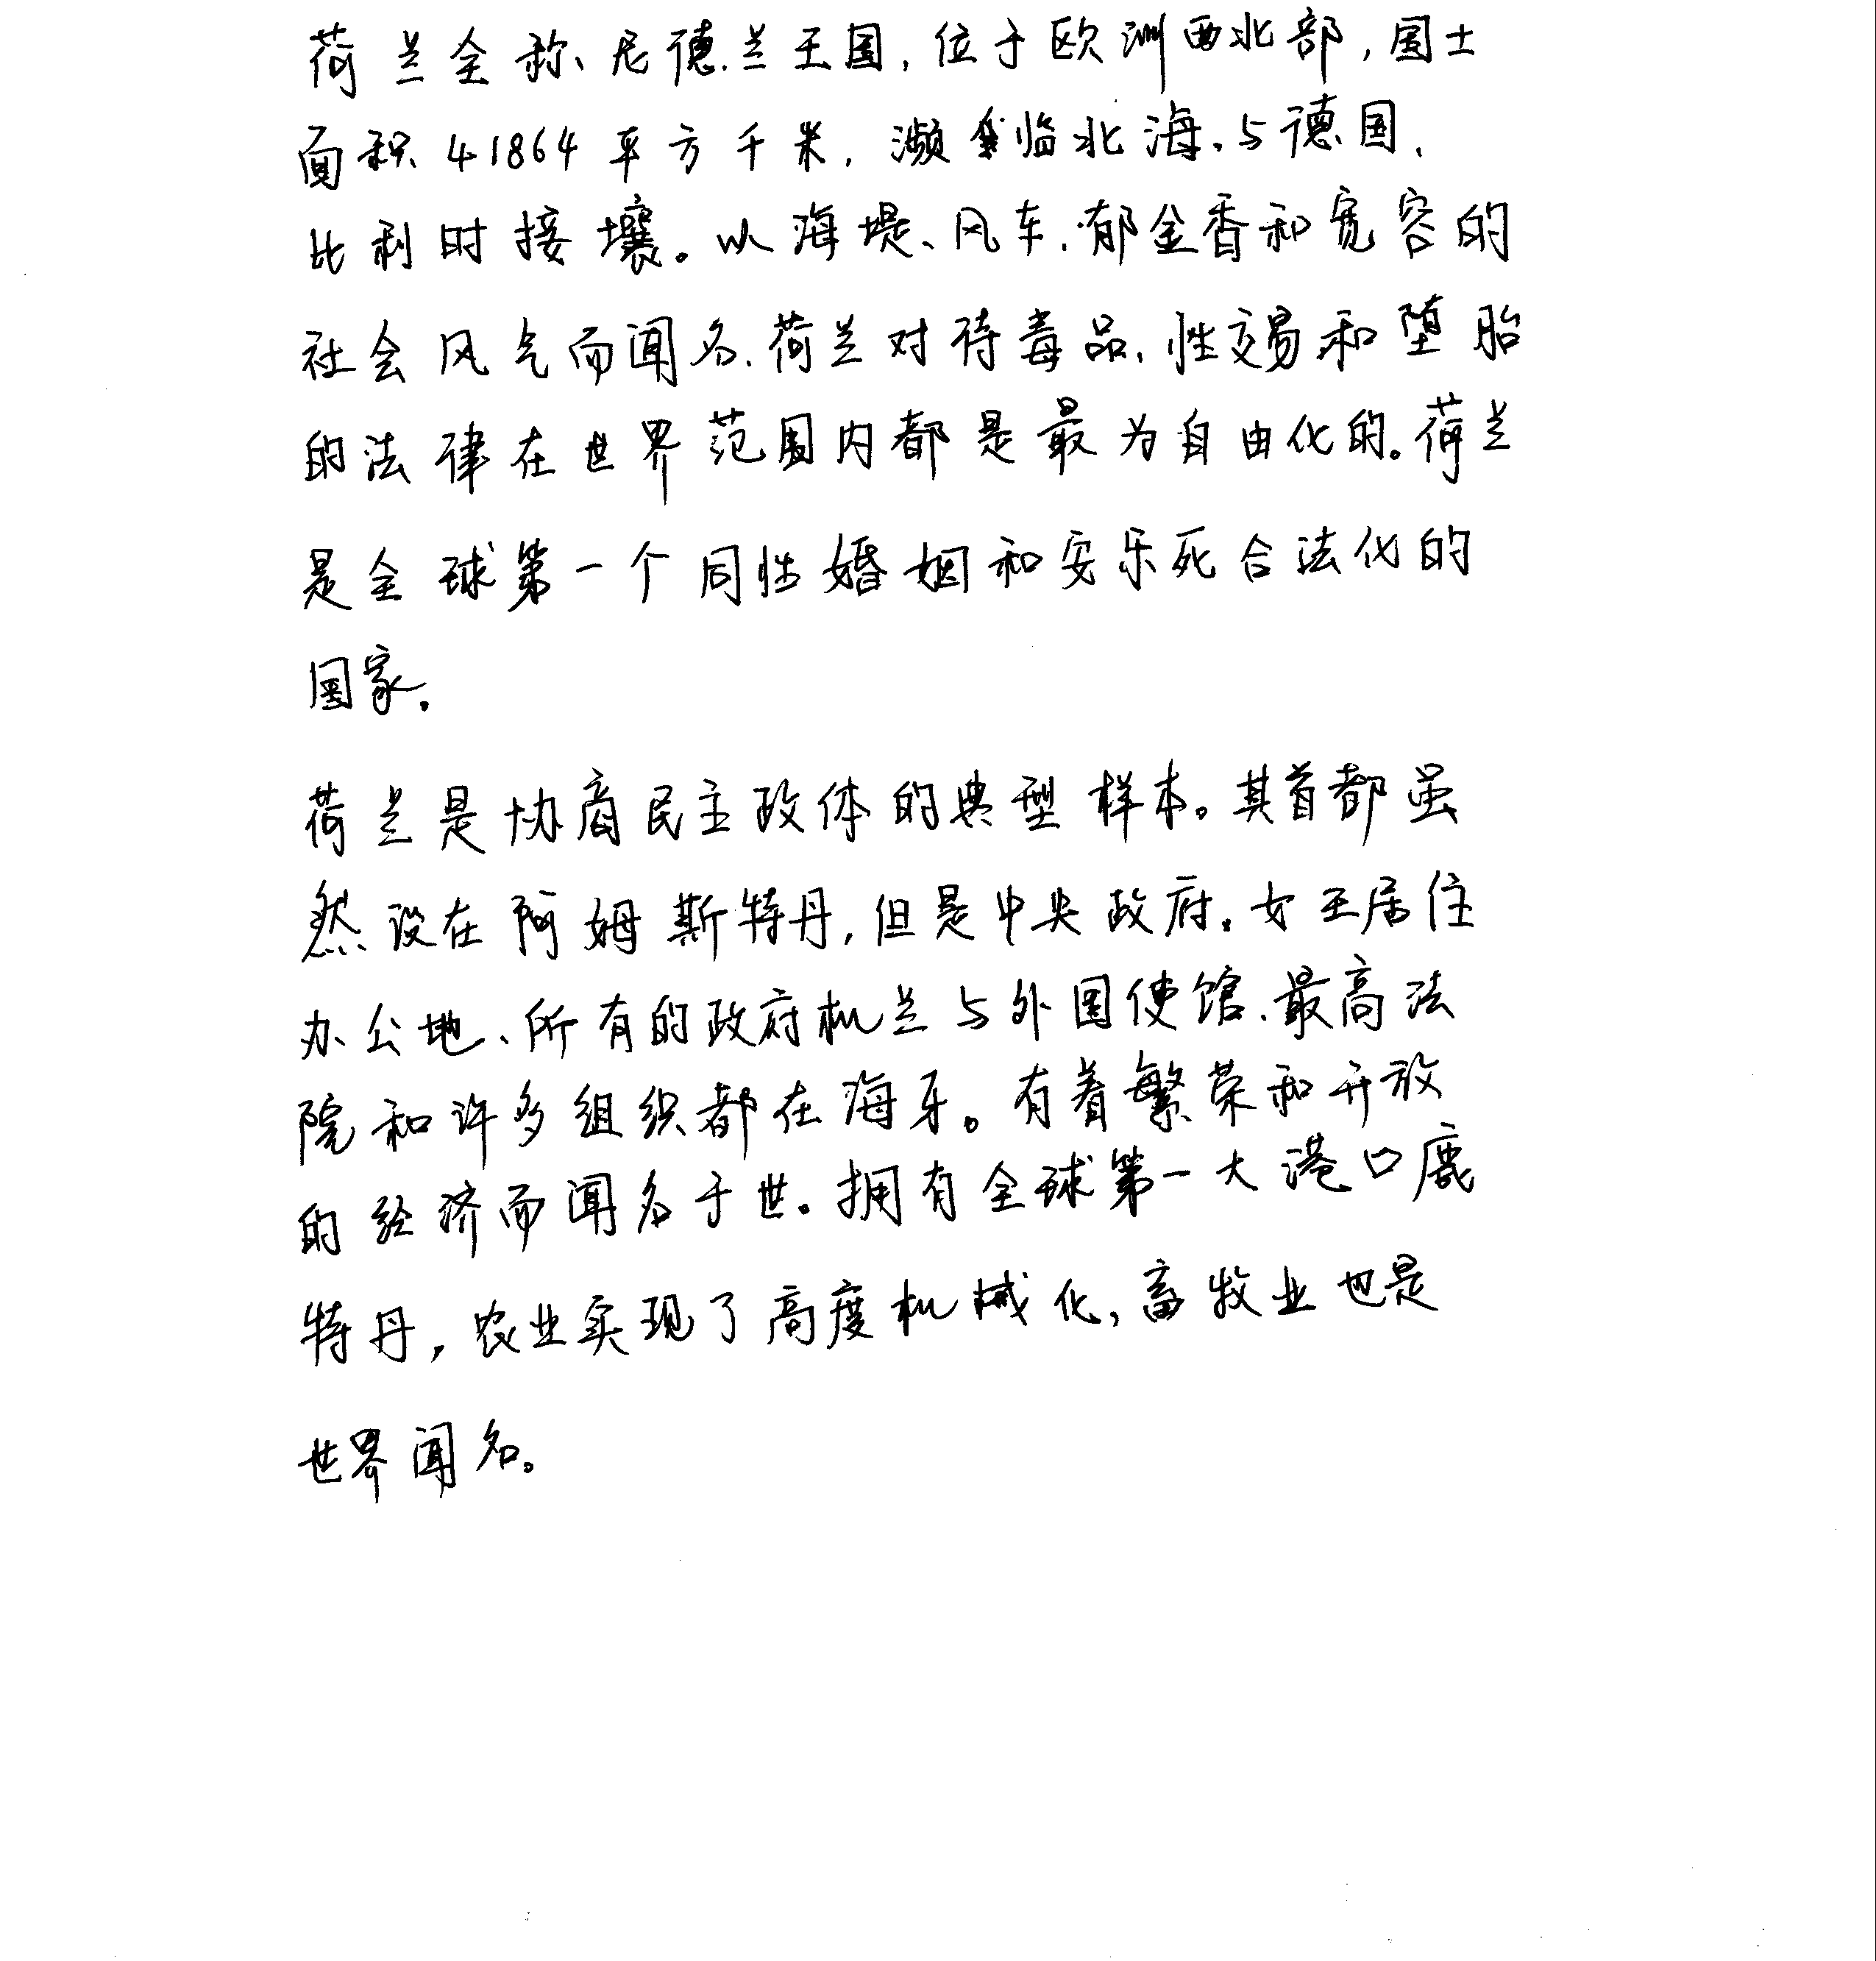 荷兰全称、尼德兰王国，位于欧洲西北部，国土
面积41864平方千米，濒临北海，与德国、
比利时接壤。以海堤、风车、郁金香和宽容的
社会风气而闻名，荷兰对待毒品、性交易和堕胎
的法律在世界范围内都是最为自由化的。荷兰
是全球第一个同性婚姻和安乐死合法化的
国家。
荷兰是协商民主政体的典型样本。其首都虽
然设在阿姆斯特丹，但是中央政府、女王居住
办公地、所有的政府机兰与外国使馆、最高法
院和许多组织都在海牙。有着繁荣和开放
的经济而闻名于世。拥有全球第一大港口鹿
特丹，农业实现了高度机械化，畜牧业也是
世界闻名。